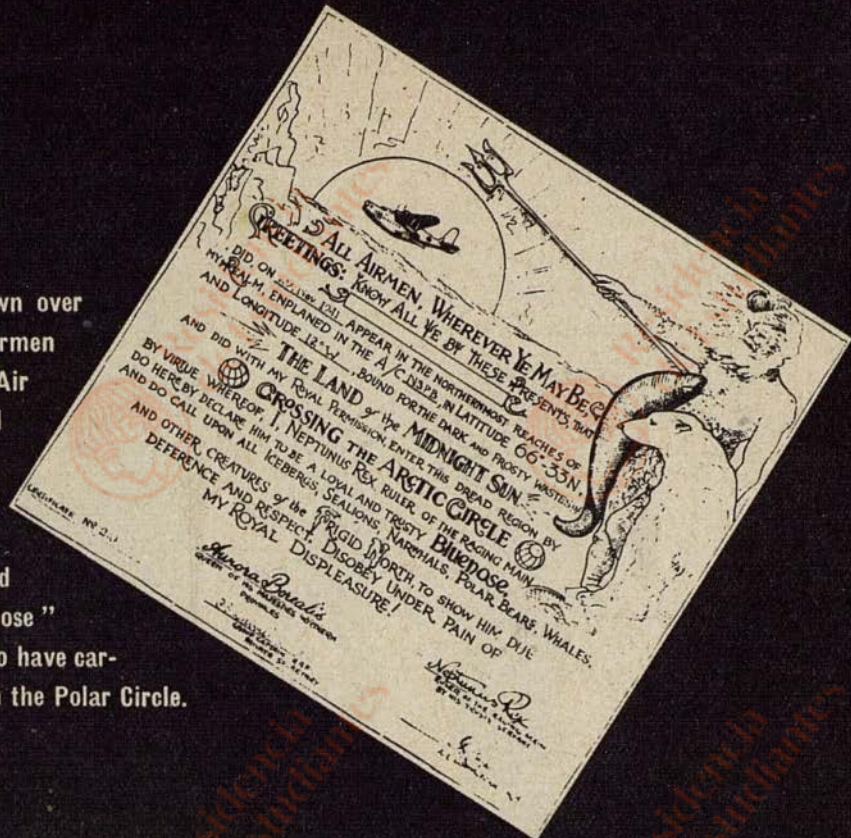 wn over
rmen
Air
d
ose "
o have car-
the Polar Circle.
ALL AIRMEN, WHEREVER YE MAY BE,
GREETINGS: KNOW ALL YE BY THESE PRESENTS, THAT
DID ON 1941 APPEAR IN THE NORTHERNMOST REACHES OF
MY REALM, ENPLANED IN THE A/C IN LATITUDE 66-33N,
AND LONGITUDE 12°W, BOUND FOR THE DARK AND FROSTY WASTES IN
THE LAND of the MIDNIGHT SUN
AND DID WITH MY ROYAL PERMISSION, ENTER THIS DREAD REGION BY
CROSSING THE ARCTIC CIRCLE
BY VIRTUE WHEREOF I, NEPTUNUS REX, RULER OF THE RAGING MAIN,
DO HEREBY DECLARE HIM TO BE A LOYAL AND TRUSTY BLUENOSE,
AND DO CALL UPON ALL ICEBERGS, SEALIONS, NARWHALS, POLAR BEARS, WHALES,
AND OTHER CREATURES of the FRIGID NORTH TO SHOW HIM DUE
DEFERENCE AND RESPECT, DISOBEY UNDER PAIN OF
MY ROYAL DISPLEASURE!
Aurora Borealis
QUEEN OF
Neptunus Rex
RULER OF THE RAGING MAIN
BY HIS SERVANT
GROUP CAPTAIN RAF
CERTIFICATE Nº
Residencia
de Estudiantes